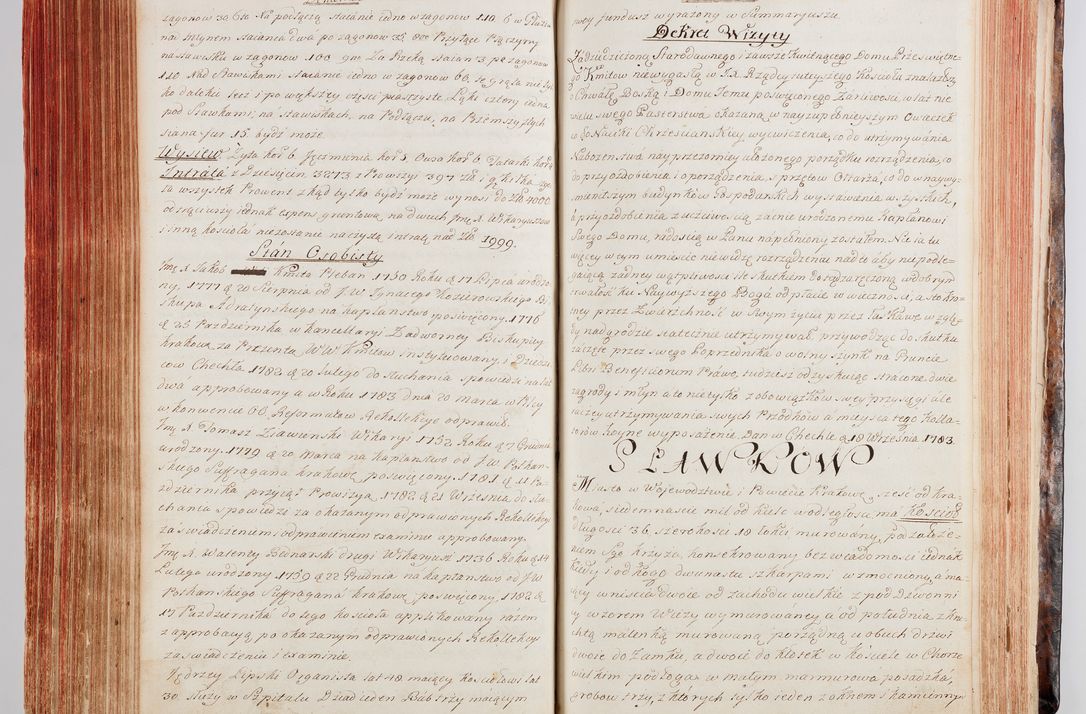 zagonow 30. 6ta Na podłączą stаianie iedno w zagonow 110. 6 w Płużu
nai mlynem staiania dwa po zagonow 35. 800 Przyłące Pszczyny
na stawisku w zagonow 100. 9no Za Rzeką staian 3 po zagonow
110. Nad Stawiskami staianie iedno w zagonow 60. te grąta nie tyl-
ko daleko lecz i po większey części piaszczyste. Łąki cztery iedna
pod Stawkami, na stawiskach, na Podłączu, na Przemszy z tych
siana fur 15. bydź może.
Wysiew Zyta kor 6. Jęczmienia kor 3 Owsa kor 6. Tatarki kor 2
Intrata z Dziesięcin 3273 z Prowizyi 397 Zł i g
ta wszystek Prowent zkąd tylko bydź może wynosi do Złł 4000
odciąwszy iednak expens gruntową, na dwuch Jmę X. Wikaryuszow
i inną kościoła niezostanie na czystą intratę nad Złł. 1999.
Stan Osobisty
Jmę X. Jakob Kmita Pleban 1750 Roku d. 17 Lipca urodzo-
ny. 1777 d. 20 Sierpnia od J. W. Ignacego Kozierowskiego Bi-
skupa Adratynskiego na kapłanstwo poswięcony. 1776
d. 25 Pazdziernika w kancellaryi Zadworney Biskupiey
krakow. za Prezentą WW. Kmitow Instytuowany, i Dziedzi-
cow Chechła 1782 d. 20 Lutego do słuchania spowiedzi na lat
dwa approbowany a w Roku 1783 dnia 20 Marca w Pilicy
w konwencie OO. Reformatow Rekollekcye odprawił.
Jmę X. Tomasz Zławienski Wikary 1752 Roku d. 7 Grudnia
urodzony. 1779 d. 20 Marca na kapłanstwo od J. W. Potkan-
skiego Suffragana krakow. poswięcony. 1781 d. 11 Pa-
ździernika przyiął Prowizyą. 1782 d. 21 Wrzesnia do słu-
chania spowiedzi za okazanym odprawionych Rekollekcyi
zaswiadczeniem i odprawieniem examine approbowany.
Jmę X. Walenty Bednarski drugi Wikaryusz 1736 Roku d. 14
Lutego urodzony 1759 d. 22 Grudnia na kapłanstwo od J. W.
Potkanskiego Suffragana krakow. poswięcony. 1782 d.
17 Pazdziernika do tego kościoła applikowany razem
z approbacyą po okazanym odprawionych Rekollekcyi
zaswiadczeniu i examinie.
Jędrzey Lipski Organista lat 48 maiący kosciołowi lat
30 służy w Szpitalu Dziad ieden Bab trzy maiącym
nowy fundusz wyrazony w Summaryuszu.
Dekret Wizyty
Zadziedziczoną Starodawnego i zawsze kwitnącego Domu Prześwietne-
go Kmitow niewygasłą w JX. Rządcy tuteyszego Kościoła znalazłszy
o Chwałę Boską i Domu Jemu poswięconego żarliwość, w lat nie
wielu swego Pasterstwa okazaną w nayzupełnieyszym Owieczek
w Nauki Chrzescianskiey wycwiczeniu, co do utrzymywania
Nabozenstwa nayprzezorniey ułozonego porządku rozrządzeniu, co
do przyozdobienia i oporządzenia sprzętow Ołtarza, co do w naywyg-
dnieyszym budynkow Gospodarskich wystawieniu wszystkich,
i przyozdobienia z uczciwością zacnie urodzonemu Kapłanowi
Swego Domu, radością w Panu napełniony zostałem. Nie ia tu
więcey w tym umiescie niewidzę rozrządzenie nadto aby niepodle-
gaiącą żadney wątpliwości iż skutkiem doswiadczoną w dobrym
trwałość ku Naywyższego Boga odpłacie w wieczności, a stokro-
tney przez Zwierzchność w Swym życiu przez łaskawe względy
y nadgrodzie statecznie utrzymywał przywodząc do skutku
zaczęte przez swego Poprzednika o wolny szynk na Gruncie
Plbn. Beneficionem Prawo, tudziesz odzyskuiąc stracone dwie
zagrody i młyn a to nietylko z obowiązkow swey przysięgi ale
raczey utrzymywania swych Przodkow a mieysca tego Kolla-
torow hoyne wyposażenie. Dan w Chechle d. 18 Września 1783.
SŁAWKOW
Miasto w Wojewodztwie i Powiecie krakow. szesć od kra-
kowa, siedemnascie mil od kielc w odległości ma kosciół
długości 36. szerokości 18 łokci, murowany, pod założe-
niem Sgo krzyża, konsekrowany bez wiadomości iednak
kiedy i od kogo dwunastu szkarpami wzmocniony, a ma-
iący wniścia dwoie od zachodu wielkie z pod Dzwonni-
cy wzorem Wieży wymurowaney a od południa z kru-
chtą malenką murowaną porządną, u obuch drzwi
dwoie do zamku, a dwoie do klotek w kościele w Chorze
wielkim podłoga w małym marmurowa posadzka,
grobow trzy, z ktorych tylko ieden z oknem i kamienny